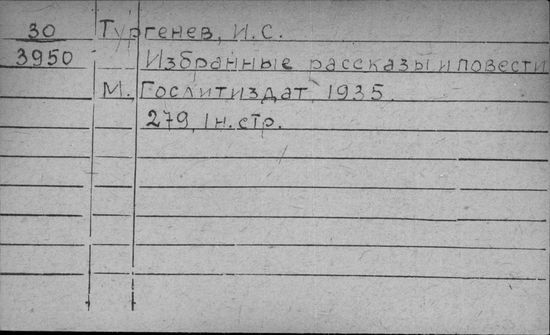 30 Тургенев, И.С.
3950 Избранные рассказы и повести
М. Гослитиздат, 1935.
279, 1 н. стр.